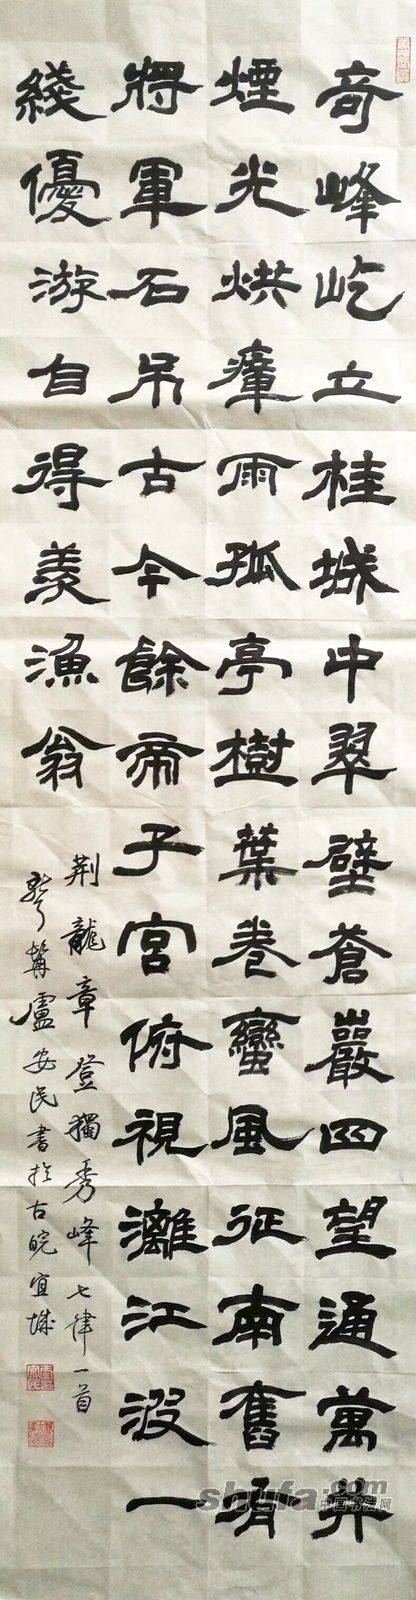 奇峰屹立桂城中翠壁蒼巖四望通萬井
煙光烘瘴雨孤亭樹葉卷蠻風征南舊有
將軍石吊古今餘帝子宮俯視灕江波一
綫優游自得羨漁翁
荆龍章登獨秀峰七律一首
盧安民書於古皖宜城
shufa.com
中国书法网